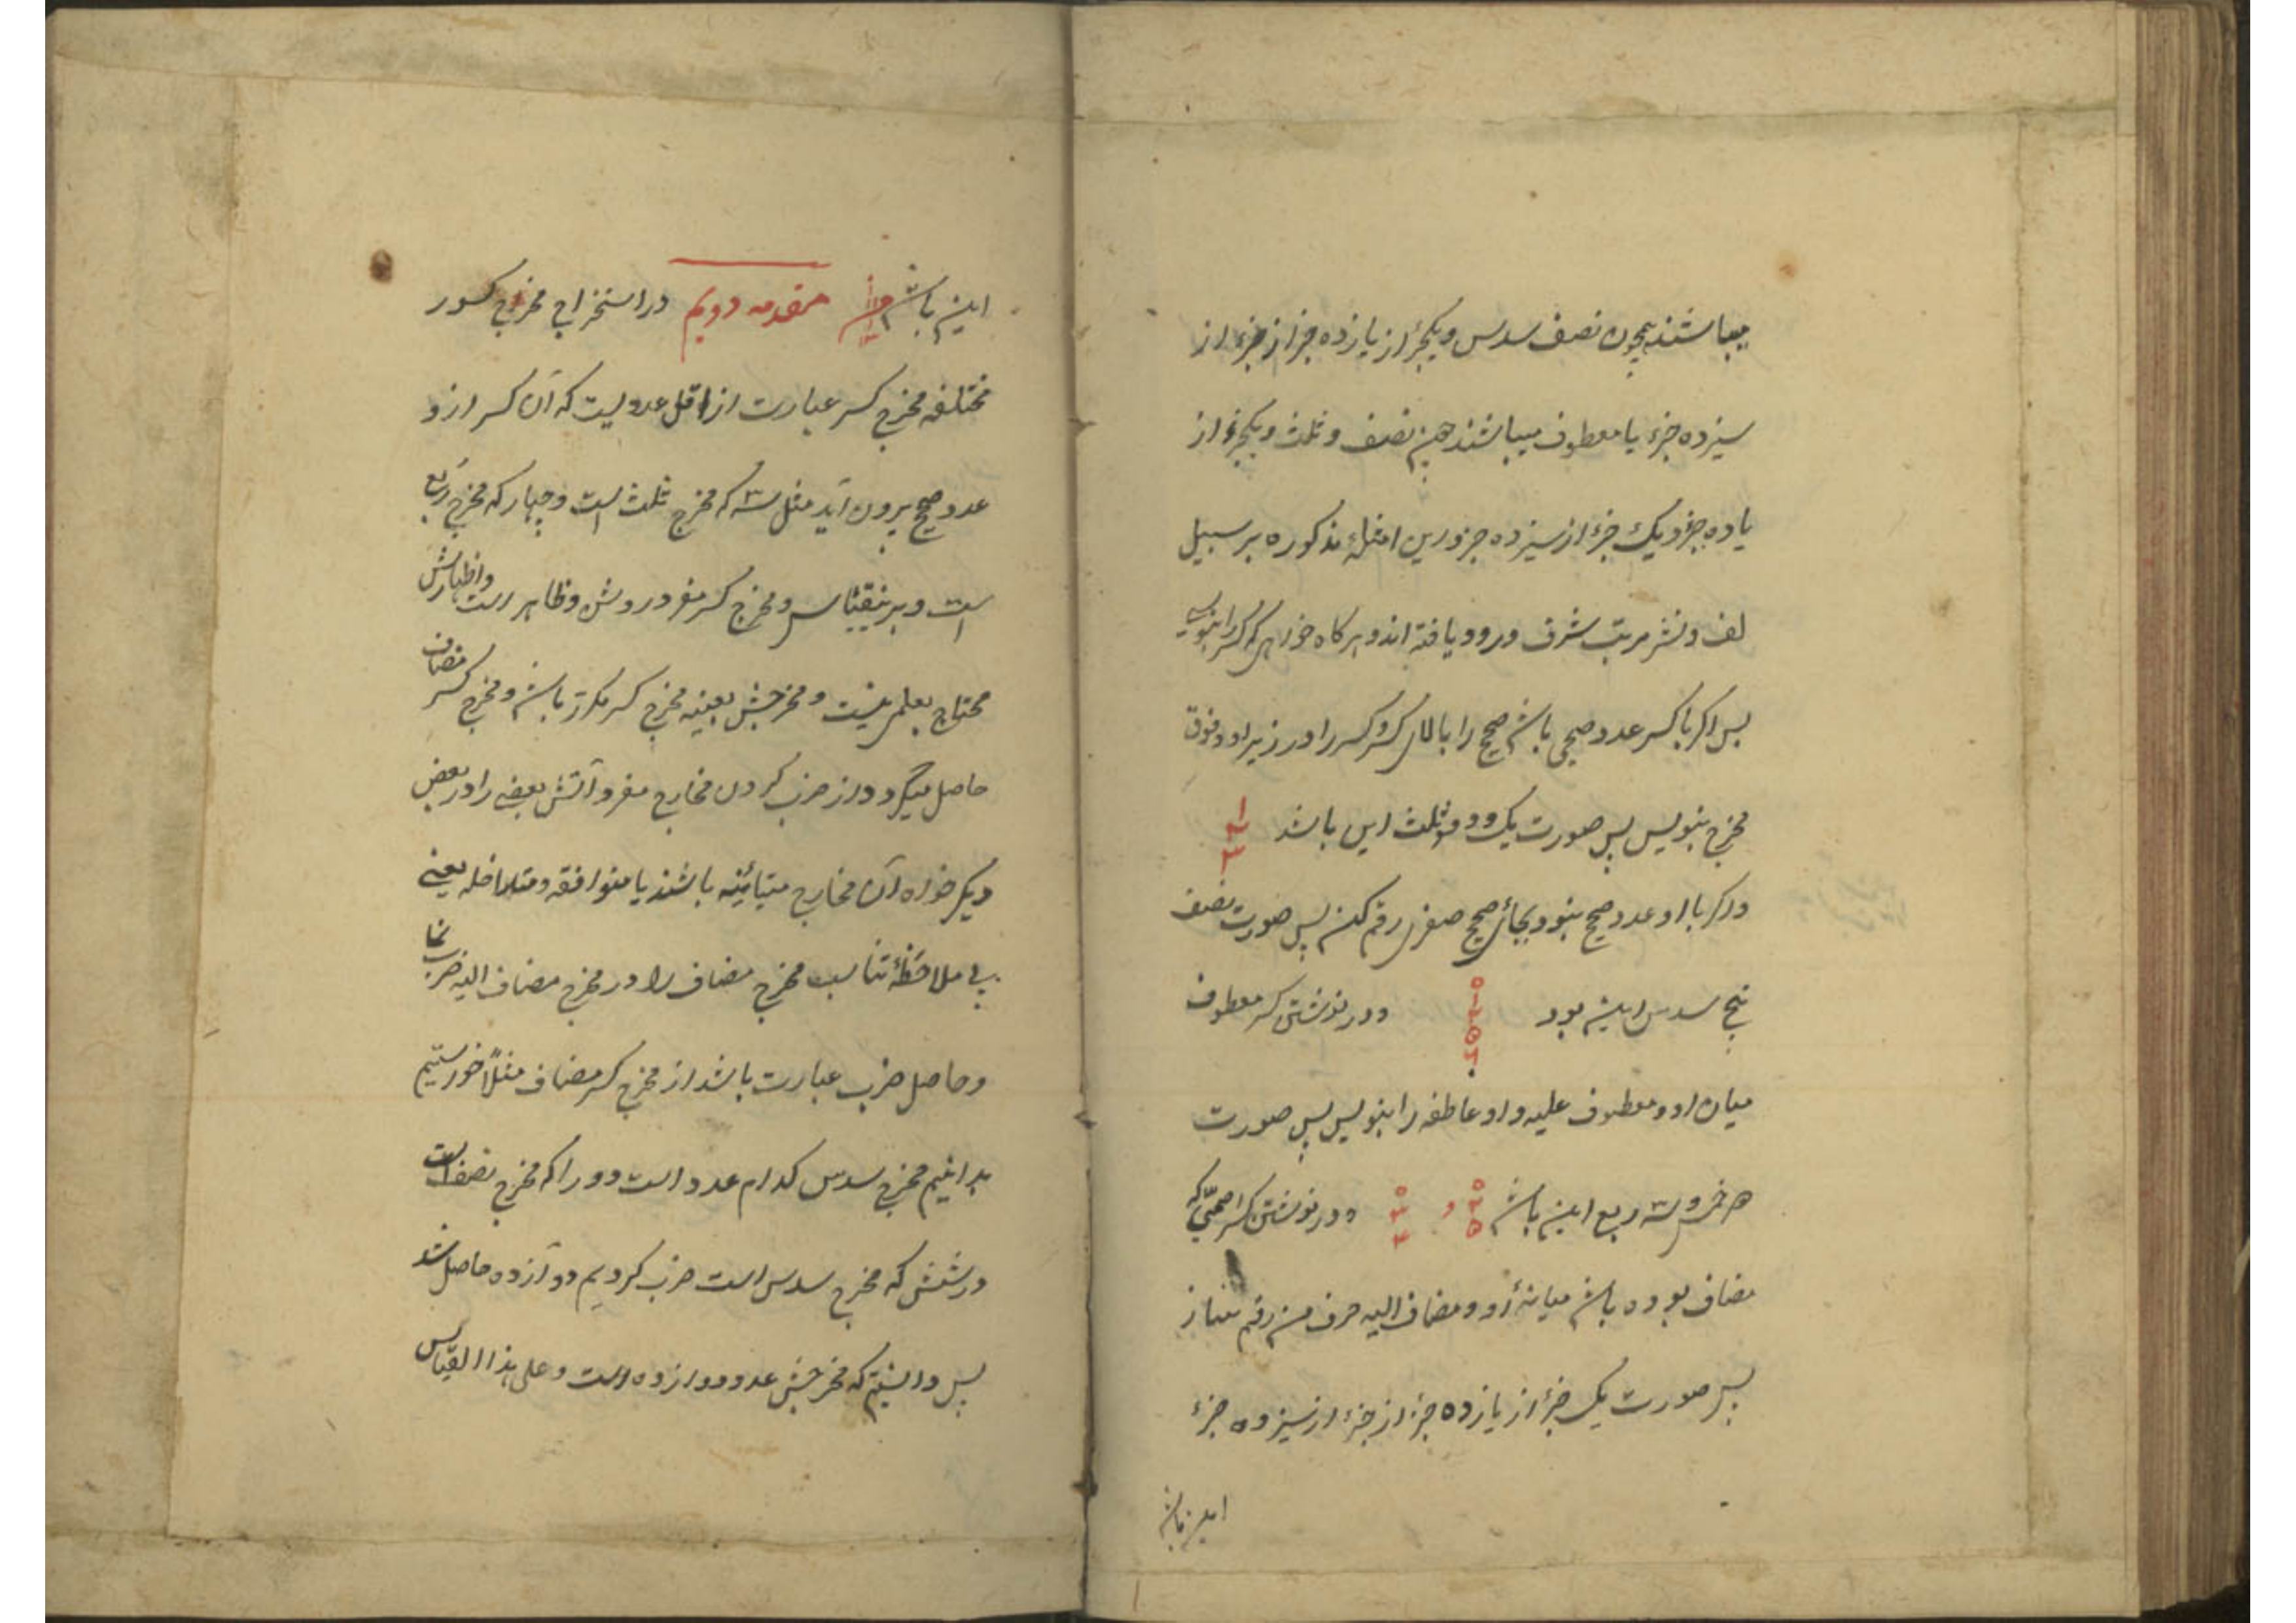 میباشند همچون نصف سدس و یکجزء از یازده جزء از جزء از
سیزده جزء یا معطوف میباشند همچون نصف و ثلث و یکجزء از
یازده جزء و یک جزء از سیزده جزء و این امثلهٔ مذکوره بر سبیل
لف و نشر مرتب شرف ورود یافته اند و هر کاه خواهی که کسر را بنویسی
پس اکر با کسر عدد صحیحی باشد صحیح را بالای کسر و کسر را در زیر او و فوق
مخرج بنویس پس صورت یک و دو ثلث این باشد ۱ ۲ ۳
و اکر با او عدد صحیح نبود بجای صحیح صفری رقم کن پس صورت نصف
پنج سدس این بود و در نوشتن کسر معطوف
میان او و معطوف علیه واو عاطفه را بنویس پس صورت
خمس و سه ربع این باشد و و در نوشتن کسر اصمی که
مضاف بوده باشد میانهٔ او و مضاف الیه حرف من رقم بساز
پس صورت یک جزء از یازده جزء از جزء از سیزده جزء
این باشد
این باشد مقدمه دویم در استخراج مخرج کسور
مختلفه مخرج کسر عبارت از اقل عددیست که آن کسر ازو
عدد صحیح برون آید مثل سه که مخرج ثلث است و چهار که مخرج ربع
است و برینقیاس و مخرج کسر مفرد روشن و ظاهر است و اظهارش
محتاج بعلمی نیست و مخرجش بعینه مخرج کسر مکرر باشد و مخرج کسر مضاف
حاصل میکردد از ضرب کردن مخارج مفرد آتش بعضی را در بعض
دیکر خواه آن مخارج متباینه باشند یا متوافقه و متداخله یعنی
بی ملاحظهٔ تناسب مخرج مضاف را در مخرج مضاف الیه ضرب نما
و حاصل ضرب عبارت باشد از مخرج کسر مضاف مثلاً خواستیم
بدانیم مخرج سدس کدام عدد است دو را که مخرج نصف است
در شش که مخرج سدس است ضرب کردیم دوآزده حاصل شد
پس دانستیم که مخرجش عدد دوازده است و علی هذا القیاس